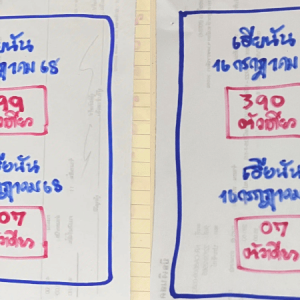 ฮียนัน
ฎาคม 68
99
ตัวเดียว
ฮียนัน
ฎาคม 68
07
ตัวเดียว
เฮียนัน
16 กรกฎาคม
390
ตัวเดียว
เฮียนัน
16 กรกฎาคม
07
ตัวเดียว